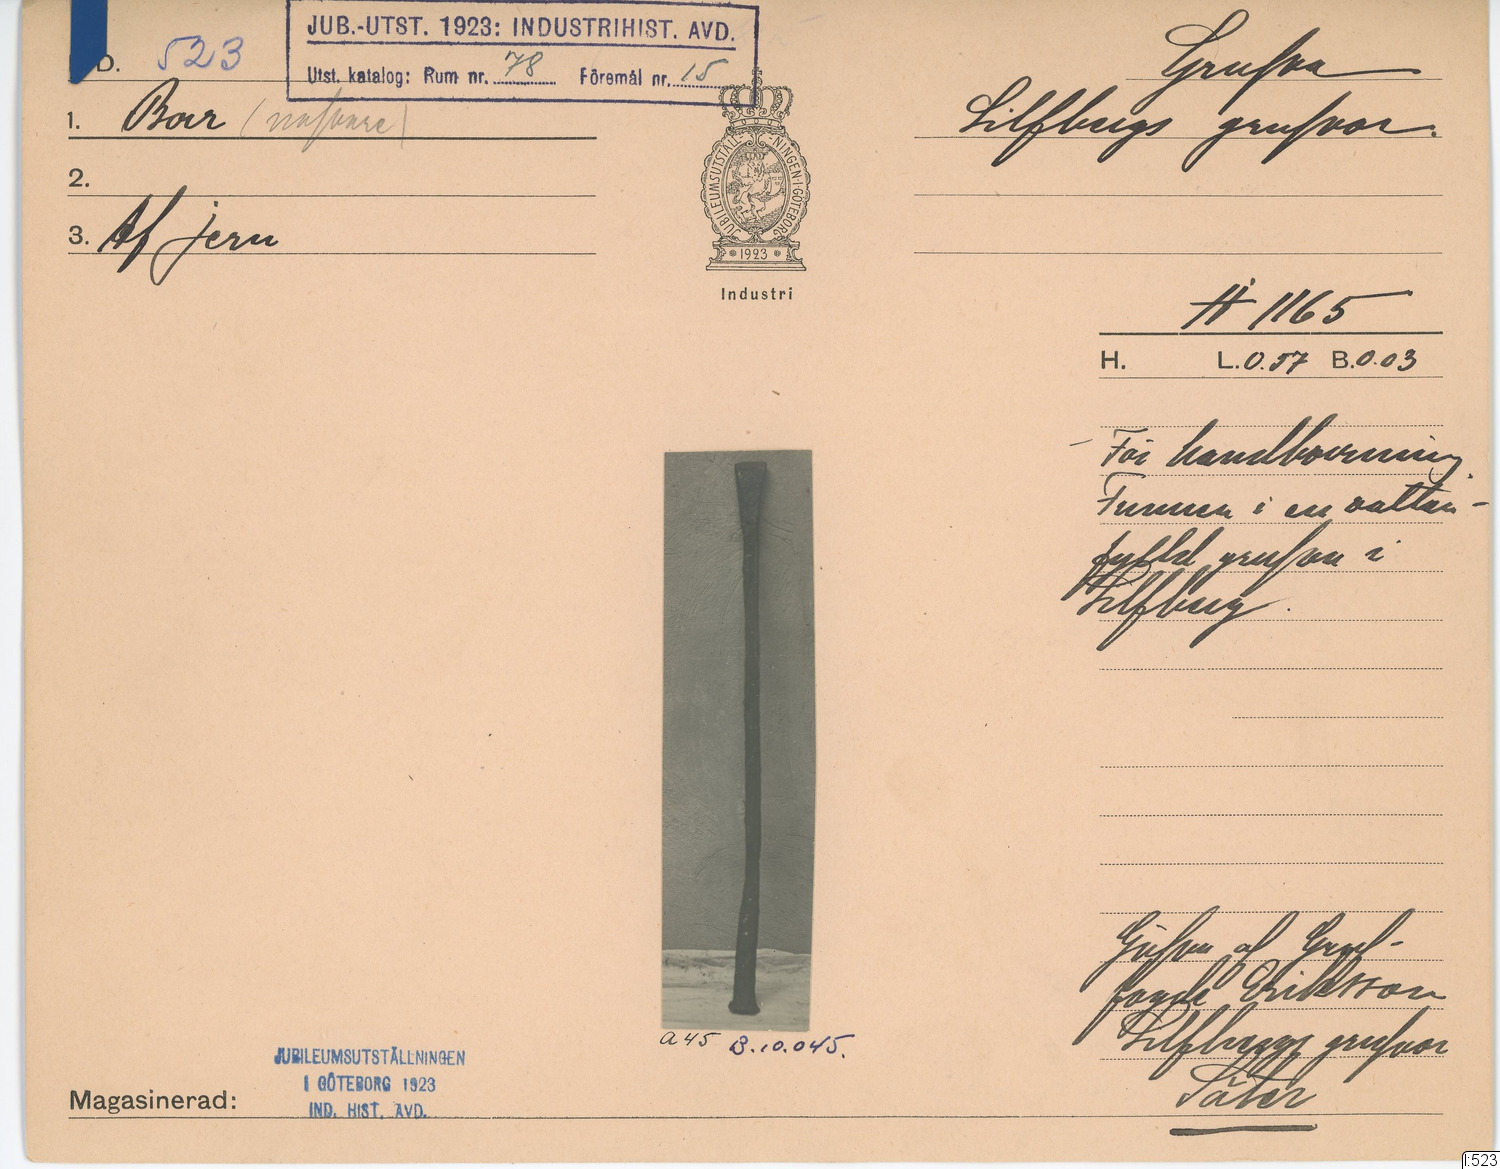 JUB.-UTST. 1923: INDUSTRIHIST. AVD.
Utst. katalog: Rum nr. 78 Föremål nr. 15
D. 523
1. Borr
2.
3. Af jern
JUBILEUMSUTSTÄLLNINGEN I GÖTEBORG
1923
Industri
Grufva
Silfbergs grufvor.
# 1165
H. L. 0.57 B. 0.03
För handborrning.
Funnen i en vatten-
fylld grufva i
Silfberg.
Gifven af Gruf-
fogde Eriksson
Silfbergs grufvor
Säter
a 45 B.10.045.
JUBILEUMSUTSTÄLLNINGEN
I GÖTEBORG 1923
IND. HIST. AVD.
Magasinerad:
I:523